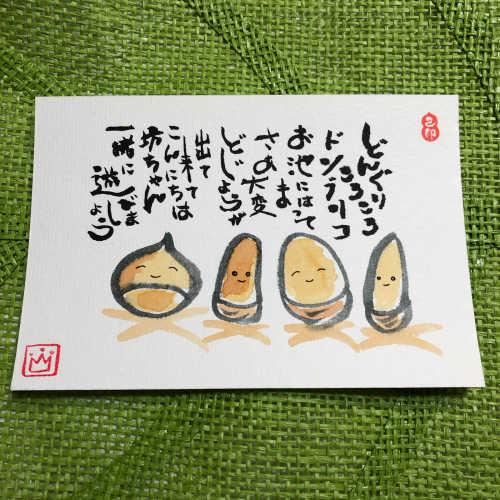 どんぐり
ころころ
ドンブリコ
お池にはまって
さあ大変
どじょうが
出て
来て
こんにちは
坊ちゃん
一緒に
遊びましょう